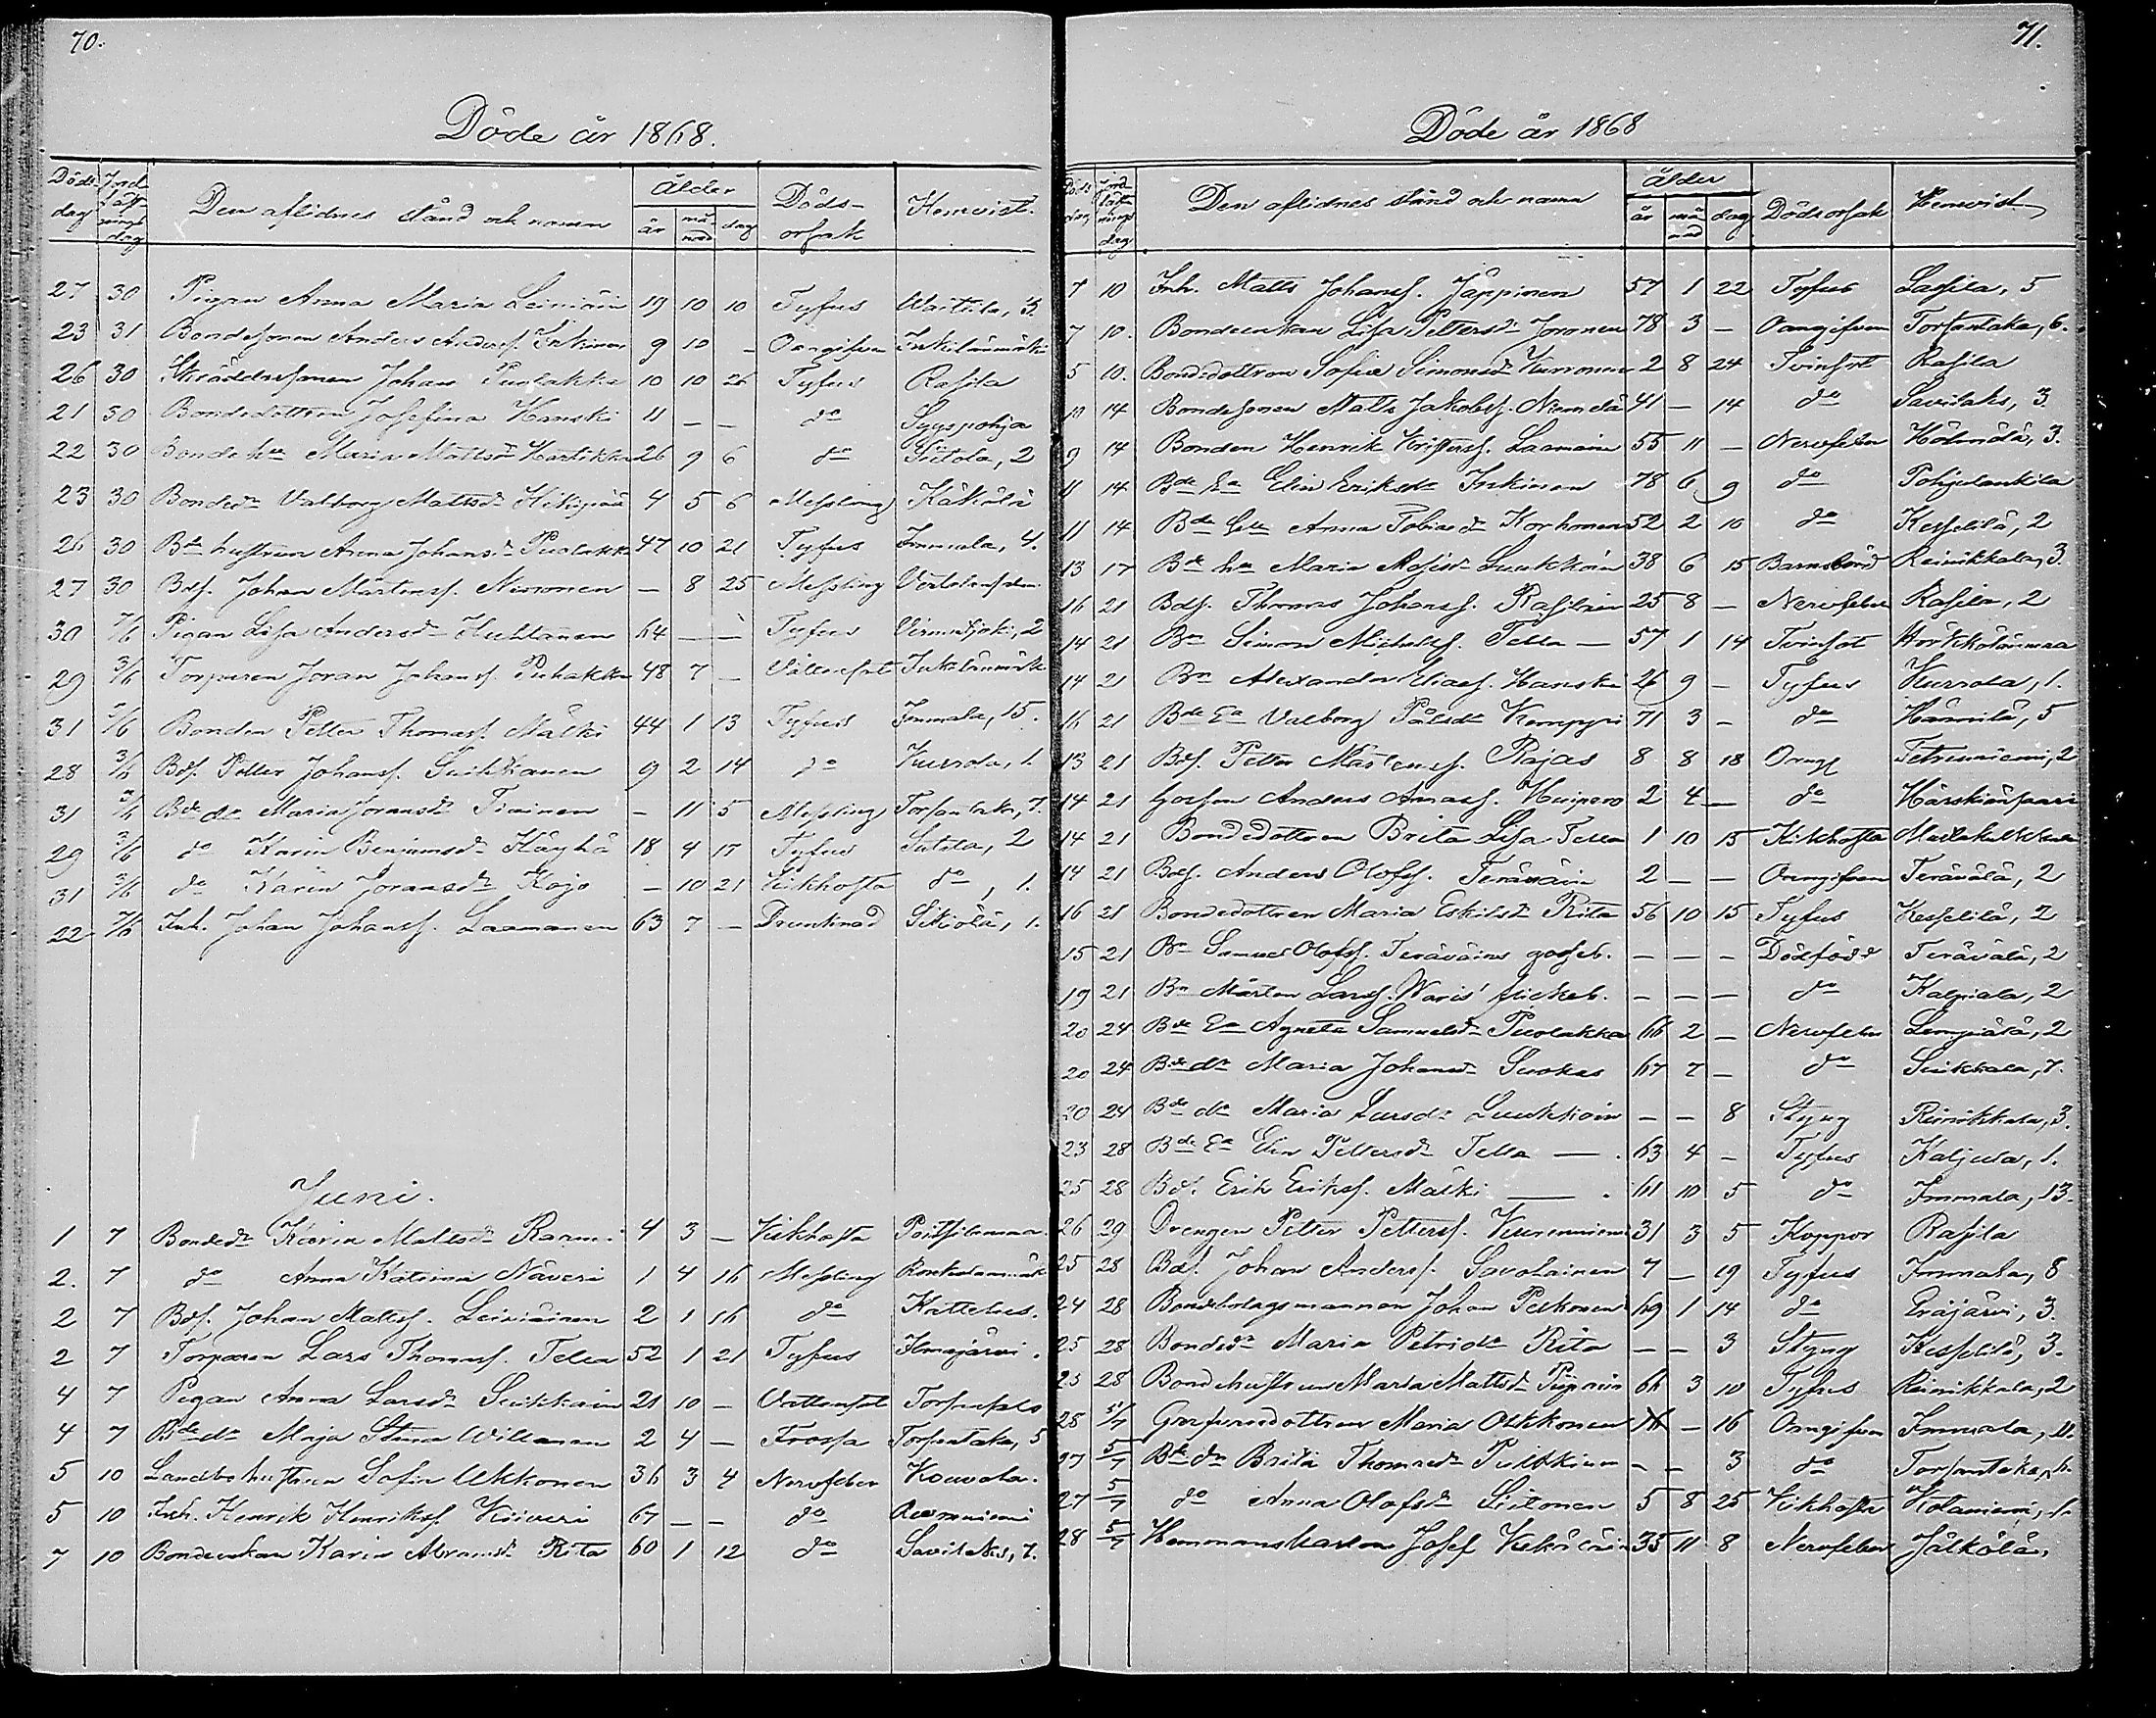 70.
Döde år 1868.
Döds dag | Jord fäst nings dag | Den aflidnes stånd och namn | ålder år månad dag | Döds-orsak | Hemvist.
27 30 Pigan Anna Maria Leiniäin 19 10 10 Tyfus Waittila, 3.
23 31 Bondesonen Anders Anderss. Inkinen 9 10 – Oangifven Inkilänmäki
26 30 Skräddaresonen Johan Puolakka 10 10 26 Tyfus Rasila
21 30 Bondedottren Josefina Hanski 11 – – do Syyspohja
22 30 Bonde hu Maria Mattsdr Hartikka 26 9 6 do Sitola, 2
23 30 Bondedr Valborg Mattsdr 4 5 6 Messling Käkölä
26 30 Bde hustrun Anna Johansdr Puolakka 47 10 21 Tyfus Immala, 4.
27 30 Bds. Johan Mårtenss. Nironen – 8 25 Messling
30 7/6 Pigan Lisa Andersdr Huhtanen 64 – – Tyfus Virmutjoki, 2
29 3/6 Torparen Joran Johanss. Puhakka 48 7 – Vattensot Inkilänmäki
31 7/6 Bonden Petter Thomass. Mälki 44 1 13 Tyfus Immala, 15.
28 3/6 Bds. Petter Johanss. Suikkanen 9 2 14 do Kurrola, 1.
31 3/6 Bde dr Maria Joransdr Tiainen – 11 5 Messling Torsantaka, 7.
29 3/6 do Karin Benjamsdr Käyhä 18 4 17 Tyfus Sitola, 2
31 3/6 do Karin Joransdr Kojo – 10 21 Kikhosta do, 1.
22 7/6 Inh. Johan Johanss. Laamanen 63 7 – Drunknad Sikiölä, 1.
Juni.
1 7 Bondedr Karin Mattsdr Rarm 4 3 – Kikhosta
2. 7 do Anna Katrina Näveri 1 4 16 Messling
2 7 Bds. Johan Mattss. Leiniäinen 2 1 16 do Kattelus.
2 7 Torparen Lars Thomass. Tella 52 1 21 Tyfus Ilmajärvi.
4 7 Pigan Anna Larsdr Suikkain 21 10 – Vattensot
4 7 Bde dr Maja Stina Willanen 2 4 – Frossa Torsantaka, 5
5 10 Landbohustrun Sofia Ukkonen 36 3 4 Nervfeber Kouvola.
5 10 Inh. Henrik Henrikss. Kiiveri 67 – – do
7 10 Bondeenkan Karin Abramsdr Rita 60 1 12 do Savilaks, 7.
71.
Döde år 1868
Döds dag | Jord fäst nings dag | Den aflidnes stånd och namn | ålder år månad dag | Dödsorsak | Hemvist
7 10 Inh. Matts Johanss. Jäppinen 57 1 22 Tyfus Lassila, 5
7 10. Bondeenkan Lisa Pettersdr Joronen 78 3 – Oangifven Torsantaka, 6.
5 10. Bondedottren Sofia Simonsdr Kurronen 2 8 24 Tvinsot Rasila
10 14 Bondesonen Matts Jakobss. Niemelä 41 – 14 do Savilaks, 3.
9 14 Bonden Henrik Kristerss. Laamain 55 11 – Nervfeber Kölmälä, 3.
11 14 Bde Ea Elin Eriksdr Inkinen 78 6 9 do Pohjalankila
11 14 Bde Ea Anna Tobiasdr Korhonen 52 2 10 do Kesselilä, 2
13 17 Bde hu Maria Luukkain 38 6 15 Barnsbörd Reinikkala, 3.
16 21 Bds. Thomas Johanss. Rasilain 25 8 – Nervfeber Rasila, 2
14 21 Bn Simon Michelss. Tella – 57 1 14 Tvinsot Härskiänmaa
14 21 Bn Alexander Eliass. Hanski 26 9 – Tyfus Kurrola, 1.
16 21 Bde Ea Valborg Pålsdr Kemppi 71 3 – do Hännilä, 5
13 21 Bds. Petter Mårtenss. Rajas 8 8 18 Oangf Tetriniemi, 2
14 21 Gossen Anders Annass. Huipero 2 4 – do Härskiänsaari
14 21 Bondedottren Brita Lisa Tella 1 10 15 Kikhosta
14 21 Bds. Anders Olofss. Teräväin 2 – – Oangifven Terävälä, 2
16 21 Bondedottren Maria Eskilsdr Rita 56 10 15 Tyfus Kesselilä, 2
15 21 Bn Samuel Olofss. Teräväins gosseb. – – – Dödfödd Terävälä, 2
19 21 Bn Mårten Larss. Waris' flickeb. – – – do Kalpiala, 2
20 24 Bde Ea Agneta Samuelsdr Puolakka 66 2 – Nervfeber Lempiälä, 2
20 24 Bde dr Maria Johansdr Suokas 67 7 – do Suikkala, 7.
20 24 Bde dr Maria Larsdr Luukkain – – 8 Slagg Reinikkala, 3.
23 28 Bde Ea Elin Pettersdr Tella — . 63 4 – Tyfus Kaljula, 1.
25 28 Bds. Erik Erikss. Mälki — . 61 10 5 do Immala, 13.
26 29 Drengen Petter Petterss. Kuurmiemi 31 3 5 Koppor Rasila
25 28 Bds. Johan Anderss. Savolainen 7 – 19 Tyfus Immala, 8
24 28 Bondebolagsmannen Johan Pekonen 69 1 14 do Eräjärvi, 3.
25 28 Bondedr Maria Petridr Rita – – 3 Slagg Kesselilä, 3.
25 28 Bondehustrun Maria Mattsdr Piipain 66 3 10 Tyfus Reinikkala, 2
28 5/7 Maria Olkkonen – 16 Oangifven Immala, 11.
27 5/7 Bde dr Brita Thomasdr Pulkkinen – – 3 do Torsantaka, 6.
27 5/7 do Anna Olofsdr Siitonen 5 8 25 Kikhosta Kotaniemi, 1.
28 5/7 Hemmanskarlen Josef 35 11 8 Nervfeber Jälkölä,